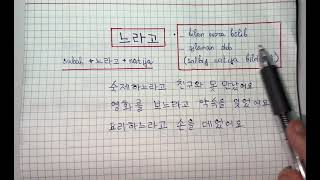 느라고
• bilan vora bolib
- qilaman deb
(salbiy natija bildi
sabab + 느라고 + natija
숙제하느라고 친구와 못 만났어요
영화를 보느라고 약속을 잊었어요
요리하느라고 손을 데었어요